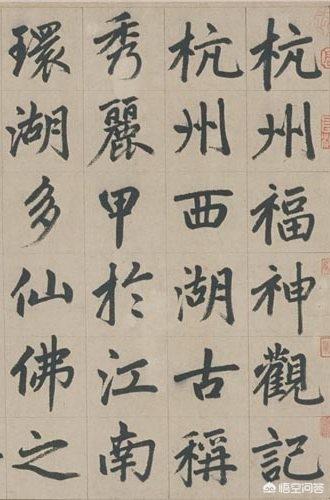 杭州福神觀記
杭州西湖古稱
秀麗甲於江南
環湖多仙佛之
悟空问答